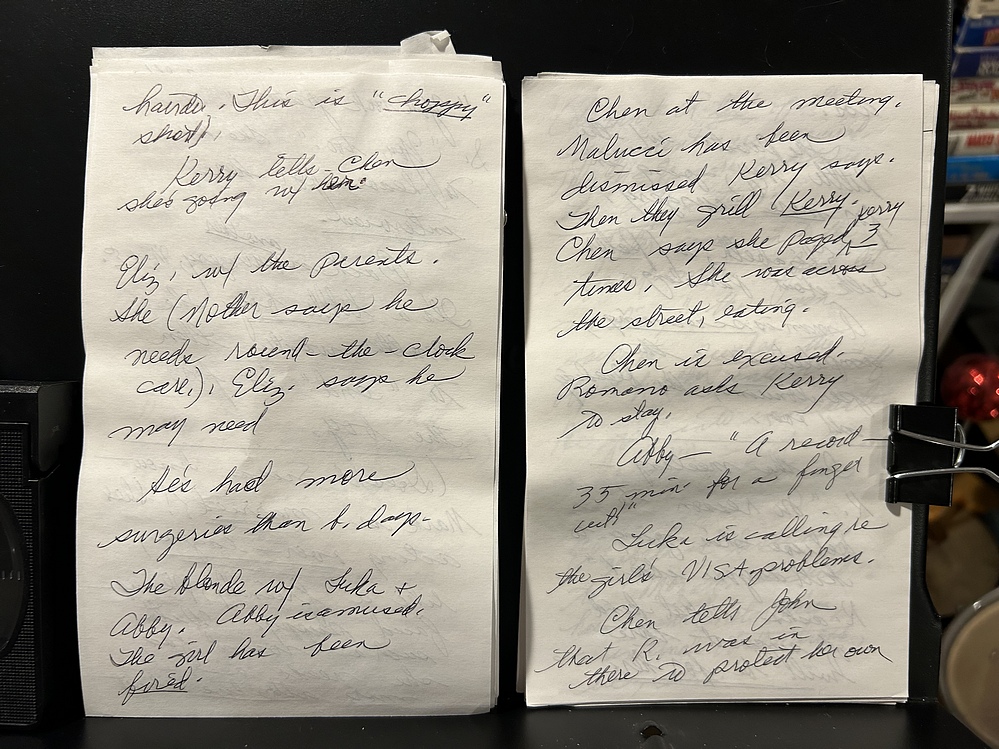 hairdo. This is "choppy"
short.
Kerry tells Chen
she's going w/ him.
Eliz. w/ the parents.
She (Mother says he
needs round-the-clock
care.). Eliz. says he
may need
He's had more
surgeries than b. days.
The blonde w/ Luka +
Abby. Abby is amused.
The girl has been
fired.
Chen at the meeting.
Malucci has been
dismissed Kerry says.
Then they grill Kerry.
Chen says she paged Kerry 3
times. She was across
the street, eating.
Chen is excused.
Romano asks Kerry
to stay.
Abby — "A record —
35 min. for a finger
Luka is calling re
the girl's VISA problems.
Chen tells John
that R. was in
there to protect her own